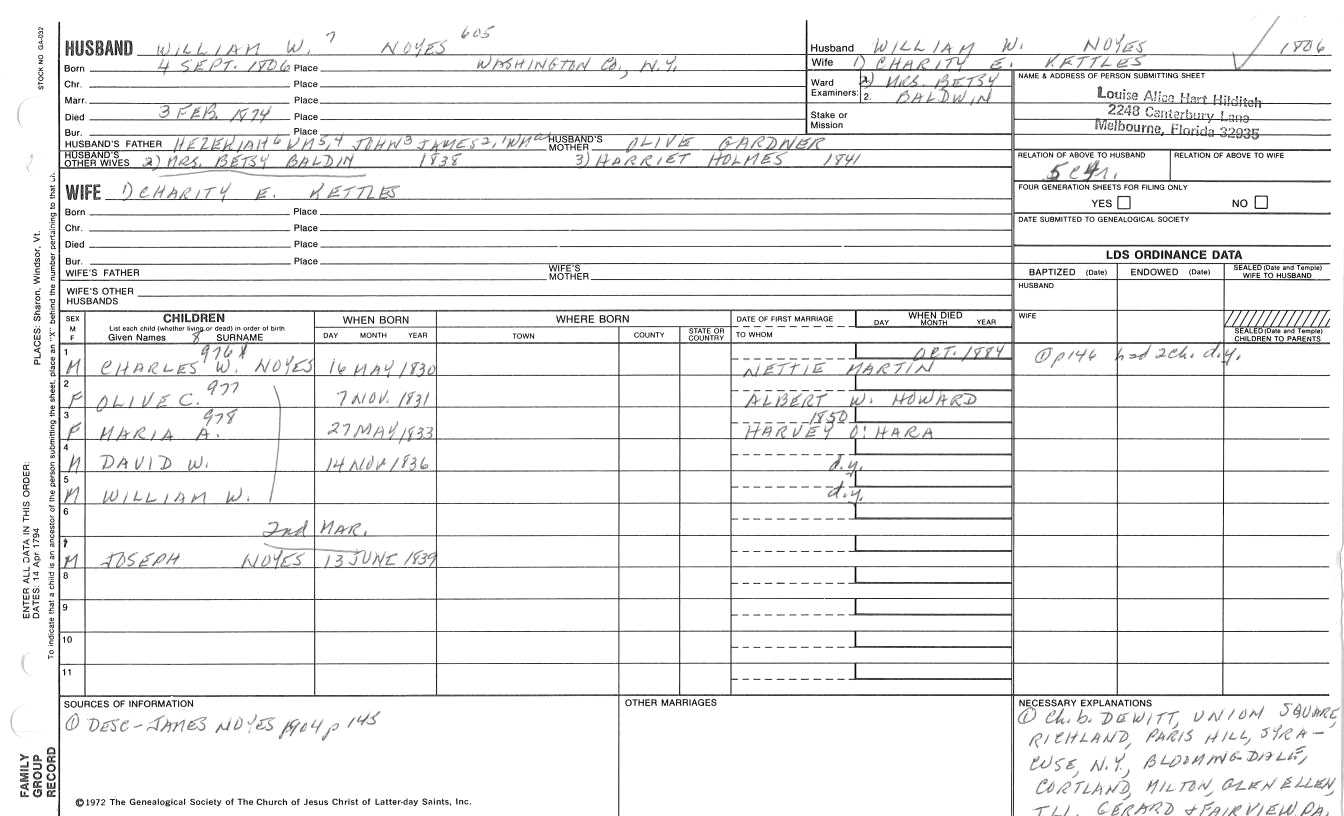 STOCK NO GA-032
HUSBAND WILLIAM W. 7 NOYES 605
Born 4 SEPT. 1806 Place WASHINGTON CO., N.Y.
Chr. Place
Marr. Place
Died 3 FEB. 1874 Place
Bur. Place
HUSBAND'S FATHER HEZEKIAH 6 WM 5,4 JOHN 3 JAMES 2, 1 WM HUSBAND'S MOTHER OLIVE GARDNER
HUSBAND'S OTHER WIVES 2) MRS. BETSY BALDIN 1838 3) HARRIET HOLMES 1841
WIFE 1) CHARITY E. KETTLES
Born Place
Chr. Place
Died Place
Bur. Place
WIFE'S FATHER WIFE'S MOTHER
WIFE'S OTHER HUSBANDS
Husband WILLIAM W. NOYES 1806
Wife 1) CHARITY E. KETTLES
Ward 2) MRS. BETSY
Examiners: 2. BALDWIN
Stake or Mission
NAME & ADDRESS OF PERSON SUBMITTING SHEET
Louise Alice Hart Hilditch
2248 Canterbury Lane
Melbourne, Florida 32935
RELATION OF ABOVE TO HUSBAND RELATION OF ABOVE TO WIFE
FOUR GENERATION SHEETS FOR FILING ONLY
YES NO
DATE SUBMITTED TO GENEALOGICAL SOCIETY
LDS ORDINANCE DATA
BAPTIZED (Date) ENDOWED (Date) SEALED (Date and Temple) WIFE TO HUSBAND
HUSBAND
WIFE
SEALED (Date and Temple) CHILDREN TO PARENTS
SEX M F CHILDREN WHEN BORN WHERE BORN DATE OF FIRST MARRIAGE WHEN DIED
List each child (whether living or dead) in order of birth
Given Names 8 SURNAME DAY MONTH YEAR TOWN COUNTY STATE OR COUNTRY TO WHOM DAY MONTH YEAR
1 976 X OCT. 1884
M CHARLES W. NOYES 16 MAY 1830 NETTIE MARTIN ① p146 had 2 ch. d.y.
2 977
F OLIVE C. 7 NOV. 1831 ALBERT W. HOWARD
3 978 1850
F MARIA A. 27 MAY 1833 HARVEY O'HARA
4
M DAVID W. 14 NOV 1836 d.y.
5
M WILLIAM W. d.y.
6
2nd MAR.
7
M JOSEPH NOYES 13 JUNE 1839
8
9
10
11
SOURCES OF INFORMATION
① DESC-JAMES NOYES 1904 p 145
OTHER MARRIAGES
NECESSARY EXPLANATIONS
① Ch. b. DEWITT, UNION SQUARE,
RICHLAND, PARIS HILL, SYRA-
CUSE, N.Y., BLOOMINGDALE,
CORTLAND, MILTON, GLEN ELLEN,
ILL. GERARD & FAIRVIEW PA.
©1972 The Genealogical Society of The Church of Jesus Christ of Latter-day Saints, Inc.
FAMILY
GROUP
RECORD
ENTER ALL DATA IN THIS ORDER:
DATES: 14 Apr 1794
PLACES: Sharon, Windsor, Vt.
To indicate that a child is an ancestor of the person submitting the sheet, place an "X" behind the number pertaining to that